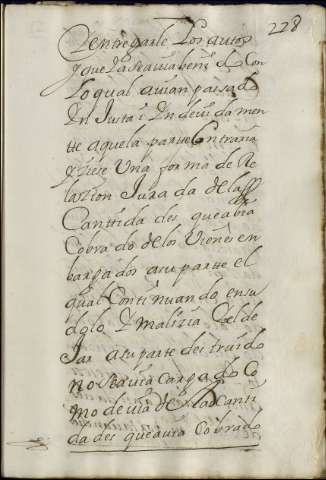 228
Dentregarle Los autos
y que La seauia hecho Con
Lo qual auian pasado
En Justa e Yndeuida men
te aquela parte Contraria
hiziese Una forma de Re
lazion Jurada de las
Canttida des que abia
Cobrado de los Vienes en
bargados a su partte el
qual Conttinuando en su
dolo Y malizia Y el de
Jar a su parte destruido
no se auia cargado Co
mo deuia de las Canti
dades que auia Cobrado